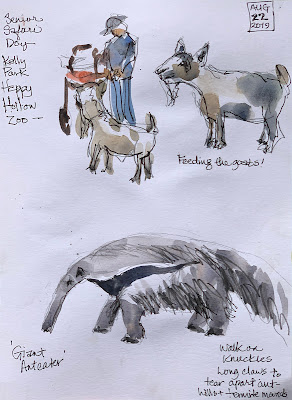 Senior
Safari
Day—
Kelly
Park
Happy
Hollow
Zoo —
AUG
22
2019
Feeding the goats!
'Giant
Anteater'
Walk on
Knuckles
Long claws to
tear apart ant-
hills + termite mounds